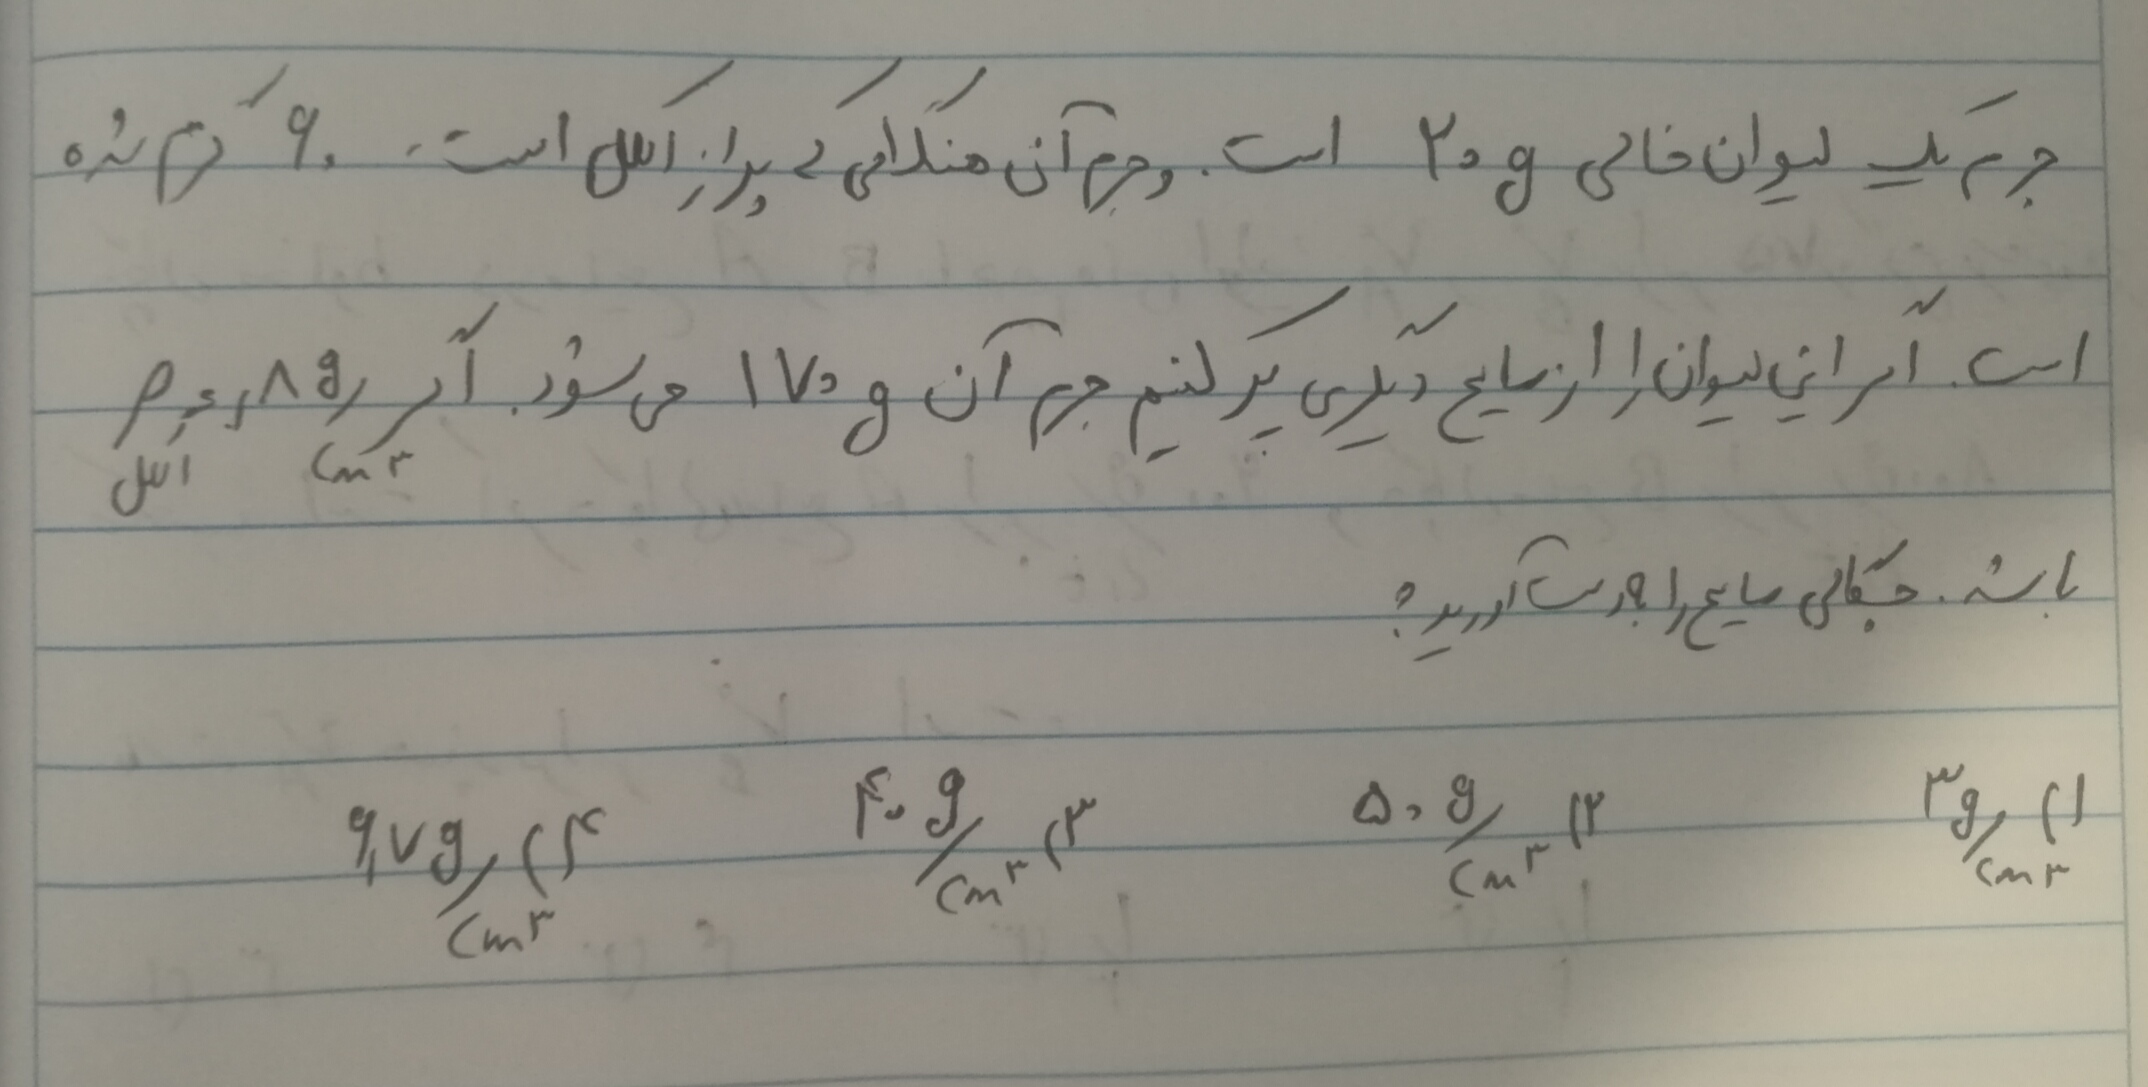 جرم یک لیوان خالی ۲۰g است. و جرم آن هنگامی که پر از الکل است. ۶۰ گرم شده
است. اگر این لیوان را از مایع دیگری پر کنیم جرم آن ۱۷۰g می شود. اگر ρ الکل ۰٫۸ g/cm۳
باشد. چگالی مایع را بدست آورید؟
۱) ۳g/cm۳ ۲) ۵۰ g/cm۳ ۳) ۴۰ g/cm۳ ۴) ۶٫۷g/cm۳